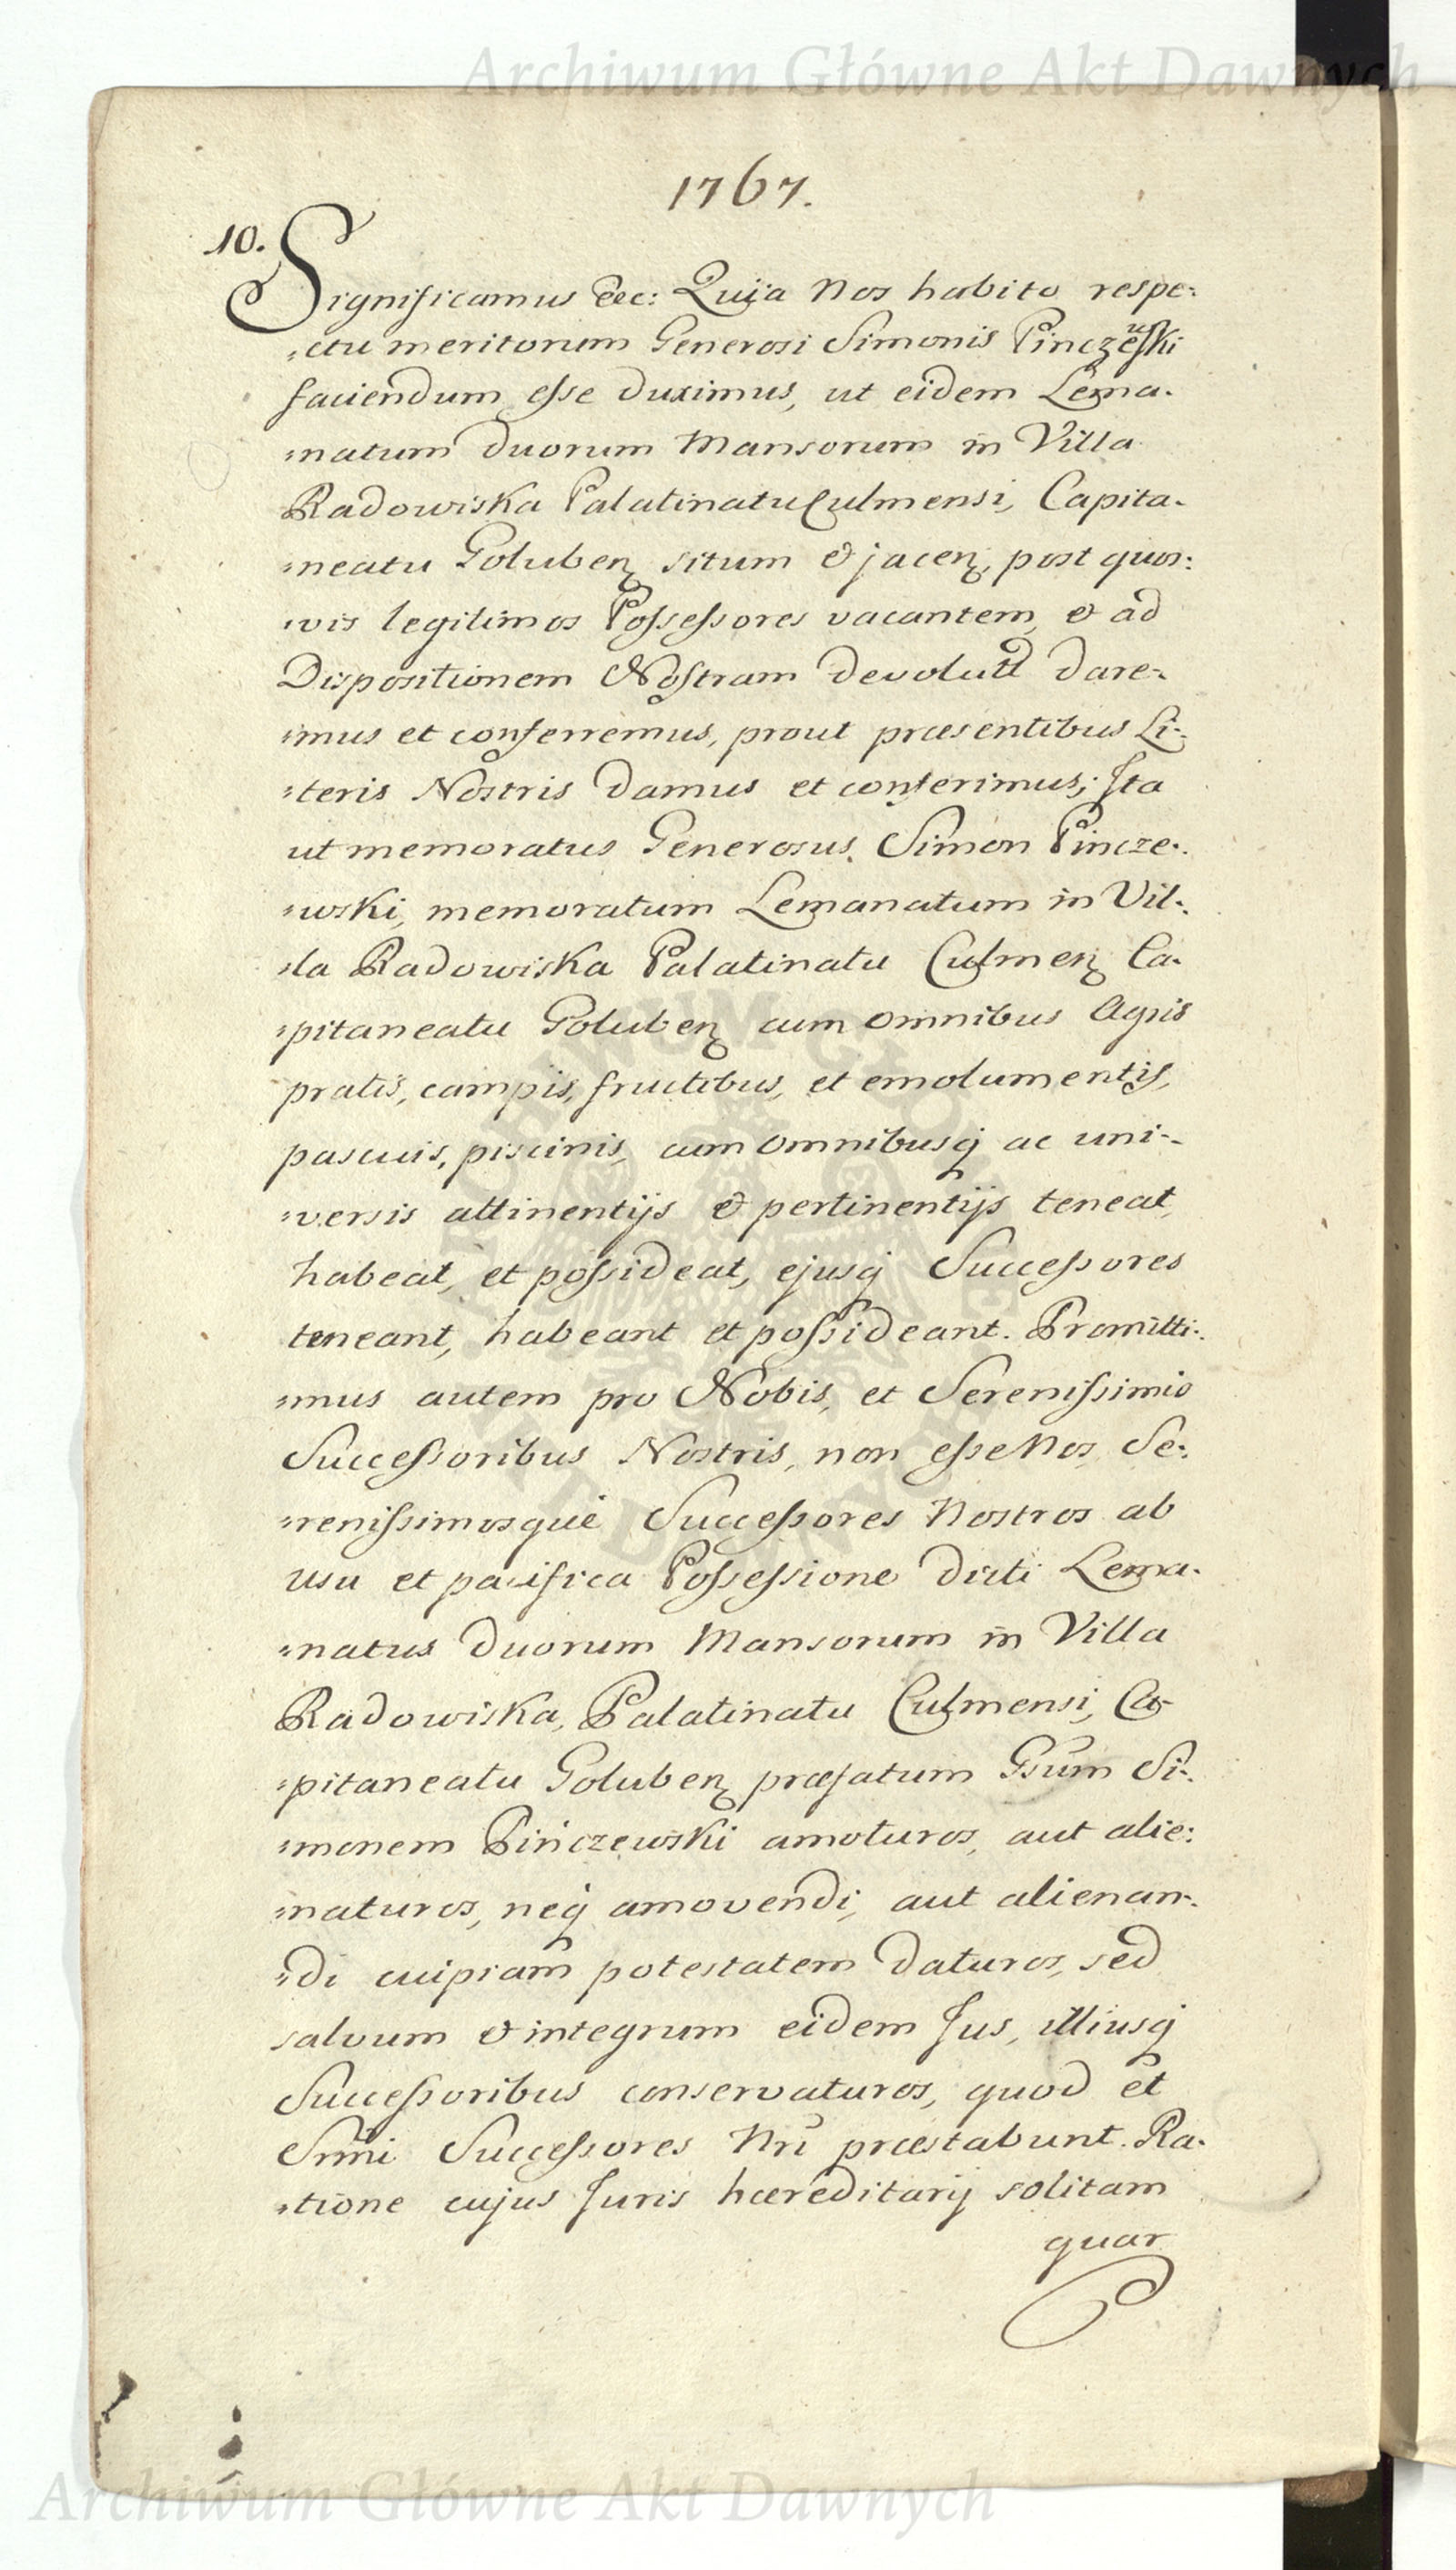 Archiwum Główne Akt Dawnych
1767.
10.
Significamus &c: Quia Nos habito respe:
:ctu meritorum Generosi Simonis Pinczewski
faciendum esse duximus, ut eidem Lema-
:natum duorum Mansorum in Villa
Radowiska Palatinatu Culmensi, Capita-
:neatu Goluben situm & jacen, post quos:
:vis legitimos Possessores vacantem, et ad
Dispositionem Nostram devolutū dare-
:mus et conferremus, prout præsentibus Li-
:teris Nostris damus et conferimus; Ita
ut memoratus Generosus Simon Pincze-
:wski, memoratum Lemanatum in Vil-
:la Radowiska Palatinatu Culmen Ca-
:pitaneatu Goluben cum omnibus Agris
pratis, campis, fructibus, et emolumentis,
pascuis, piscinis, cum omnibusq ac uni-
:versis attinentijs & pertinentijs teneat,
habeat, et possideat, ejusq Successores
teneant, habeant et possideant. Promitti-
:mus autem pro Nobis, et Serenissimis
Successoribus Nostris, non esse Nos, Se:
:renissimosque Successores Nostros ab
usu et pacifica Possessione dicti Lema-
:natus duorum Mansorum in Villa
Radowiska, Palatinatu Culmensi, Ca-
:pitaneatu Goluben præfatum Gsum Si-
:monem Pinczewski amoturos, aut alie:
:naturos, neq amovendi, aut alienan-
:di cuipiam potestatem daturos, sed
salvum & integrum eidem Jus, illiusq
Successoribus conservaturos, quod et
Srmi Successores Nri præstabunt. Ra-
:tione cujus Juris hæreditarij solitam
quar
Archiwum Główne Akt Dawnych